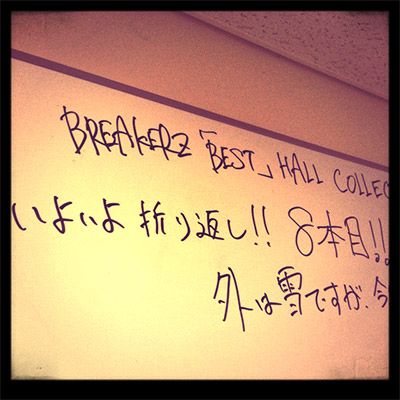 BREAKERZ「BEST」HALL COLLEC
いよいよ 折り返し!! 8本目!!
外は雪ですが、今